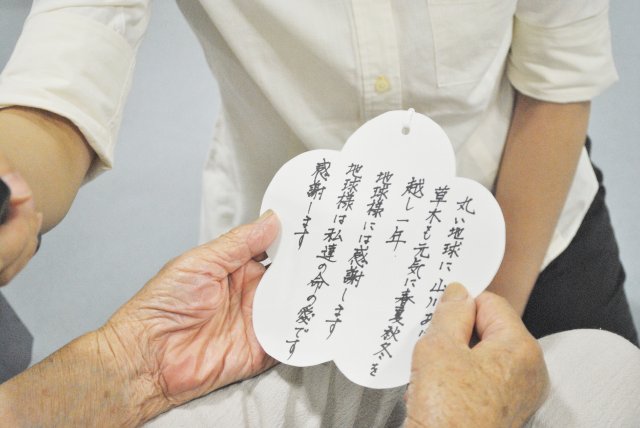 丸い地球に山川あ
草木も元気に春夏秋冬を
越し一年
地球様には感謝します
地球様は私達の命の愛です
感謝します